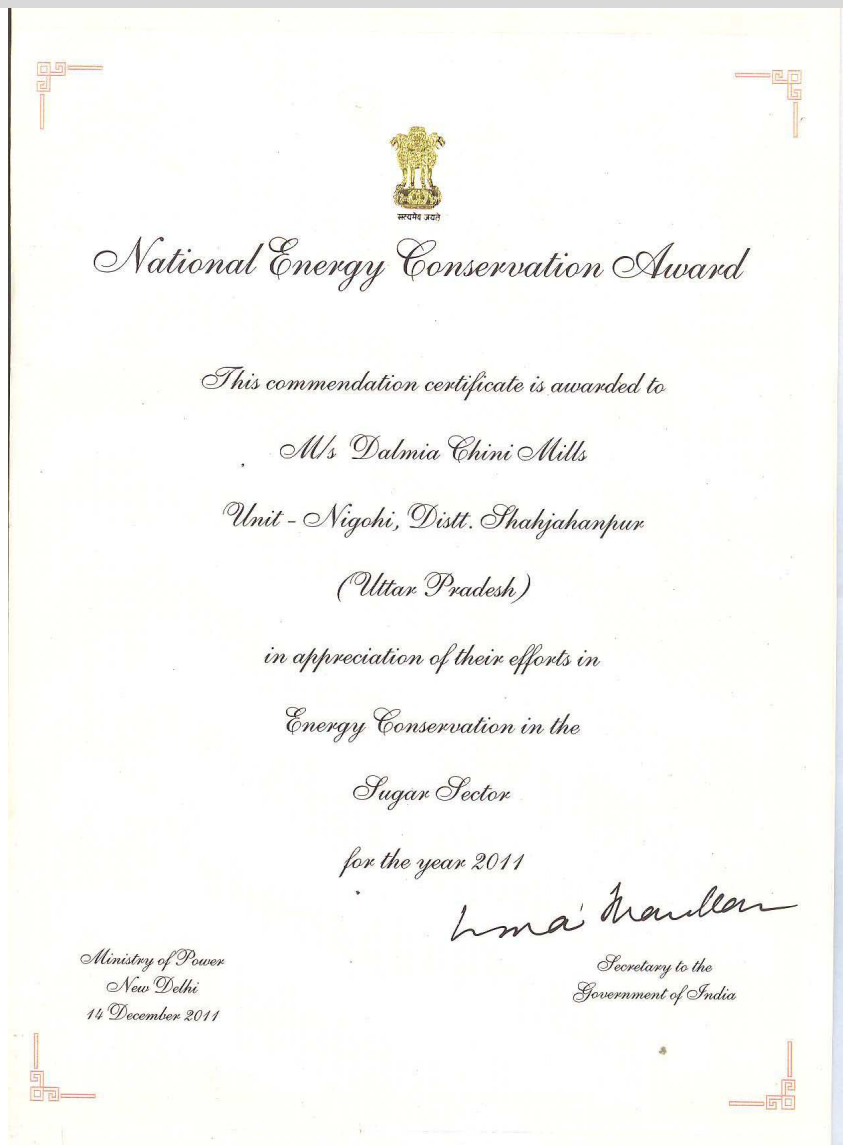 सत्यमेव जयते
National Energy Conservation Award
This commendation certificate is awarded to
M/s Dalmia Chini Mills
Unit - Nigohi, Distt. Shahjahanpur
(Uttar Pradesh)
in appreciation of their efforts in
Energy Conservation in the
Sugar Sector
for the year 2011
Ministry of Power
New Delhi
14 December 2011
Secretary to the
Government of India